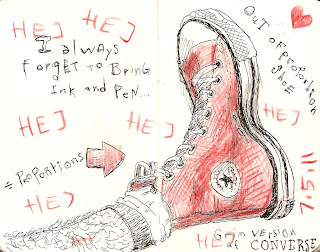 HEJ HEJ
I always
forget to Bring
Ink and Pen...
OUT OF proportion
shoe
HEJ
HEJ
HEJ
÷ Proportions
HEJ
7.5.11
HEJ
Grim version
of CONVERSE